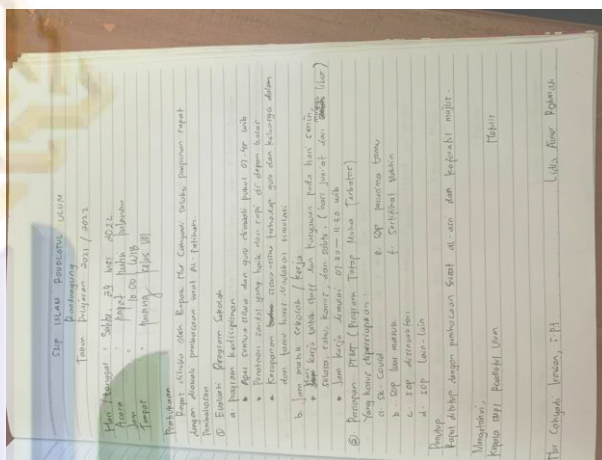 SMP ISLAM ROUDLOTUL ULUM
Tahun Pelajaran 2021 / 2022
Hari / tanggal : Sabtu, 29 2022
Acara : Rapat
Jam : 10.00 WIB
Tempat : Ruang Kelas VII
Pembukaan
Rapat dibuka oleh Bapak Nur Cahyadi selaku pimpinan rapat
dengan diawali pembacaan surat Al-Fatihah.
Pembahasan
① Evaluasi Program Sekolah
a. program kedisiplinan
• Apel semua siswa dan guru dimulai pukul 07.45 WIB
• Penataan sandal yang baik dan rapi di depan kelas
• Kesopanan siswa-siswi terhadap guru dan keluarga dalam
dan luar harus
b. Jam masuk sekolah / kerja
• Hari kerja untuk staff dan karyawan pada hari senin,
selasa, rabu, kamis, dan sabtu. (hari jum'at dan minggu libur)
• Jam kerja dimulai 07.30 - 11.20 wib
② Persiapan PTMT (Program Tatap Muka Terbatas)
Yang harus dipersiapkan :
a. SK-Covid
b. SOP luar masuk
c. SOP
d. SOP Lain-lain
e. SOP penerima tamu
f. Sertifikat vaksin
Penutup
Rapat ditutup dengan pembacaan surat al-asr dan kafaratul majlis.
Mengetahui,
Kepala SMPI Roudlotul Ulum
Notulis
Nur Cahyadi Irawan, S.Pd
Lidia Ainur Rohmah